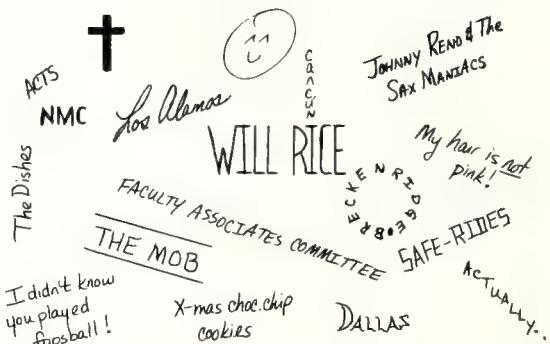 ACTS
NMC
Los Alamos
Cancun
JOHNNY RENO & THE
SAX MANIACS
WILL RICE
My hair is not
pink!
The Dishes
BRECKENRIDGE
FACULTY ASSOCIATES COMMITTEE
THE MOB
SAFE-RIDES
ACTUALLY...
I didn't know
you played
foosball!
X-mas choc.chip
cookies
DALLAS